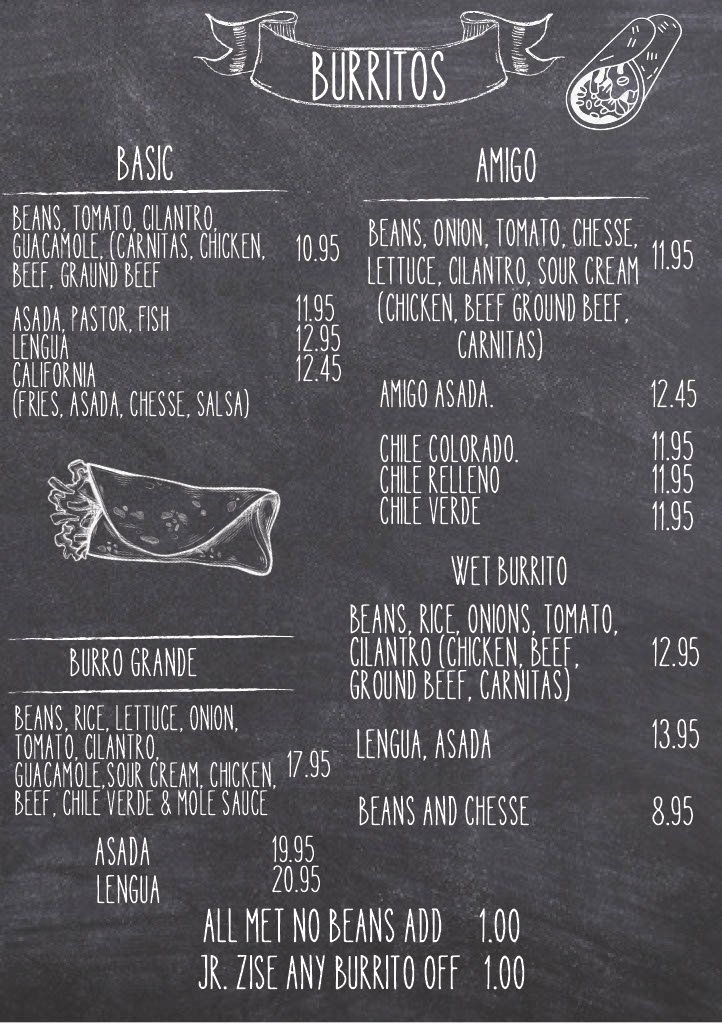 BURRITOS
BASIC
BEANS, TOMATO, CILANTRO,
GUACAMOLE, (CARNITAS, CHICKEN,
BEEF, GRAUND BEEF
10.95
ASADA, PASTOR, FISH 11.95
LENGUA 12.95
CALIFORNIA 12.45
(FRIES, ASADA, CHESSE, SALSA)
BURRO GRANDE
BEANS, RICE, LETTUCE, ONION,
TOMATO, CILANTRO,
GUACAMOLE,SOUR CREAM, CHICKEN,
BEEF, CHILE VERDE & MOLE SAUCE
17.95
ASADA 19.95
LENGUA 20.95
AMIGO
BEANS, ONION, TOMATO, CHESSE,
LETTUCE, CILANTRO, SOUR CREAM
(CHICKEN, BEEF GROUND BEEF,
CARNITAS)
11.95
AMIGO ASADA. 12.45
CHILE COLORADO. 11.95
CHILE RELLENO 11.95
CHILE VERDE 11.95
WET BURRITO
BEANS, RICE, ONIONS, TOMATO,
CILANTRO (CHICKEN, BEEF,
GROUND BEEF, CARNITAS)
12.95
LENGUA, ASADA 13.95
BEANS AND CHESSE 8.95
ALL MET NO BEANS ADD 1.00
JR. ZISE ANY BURRITO OFF 1.00